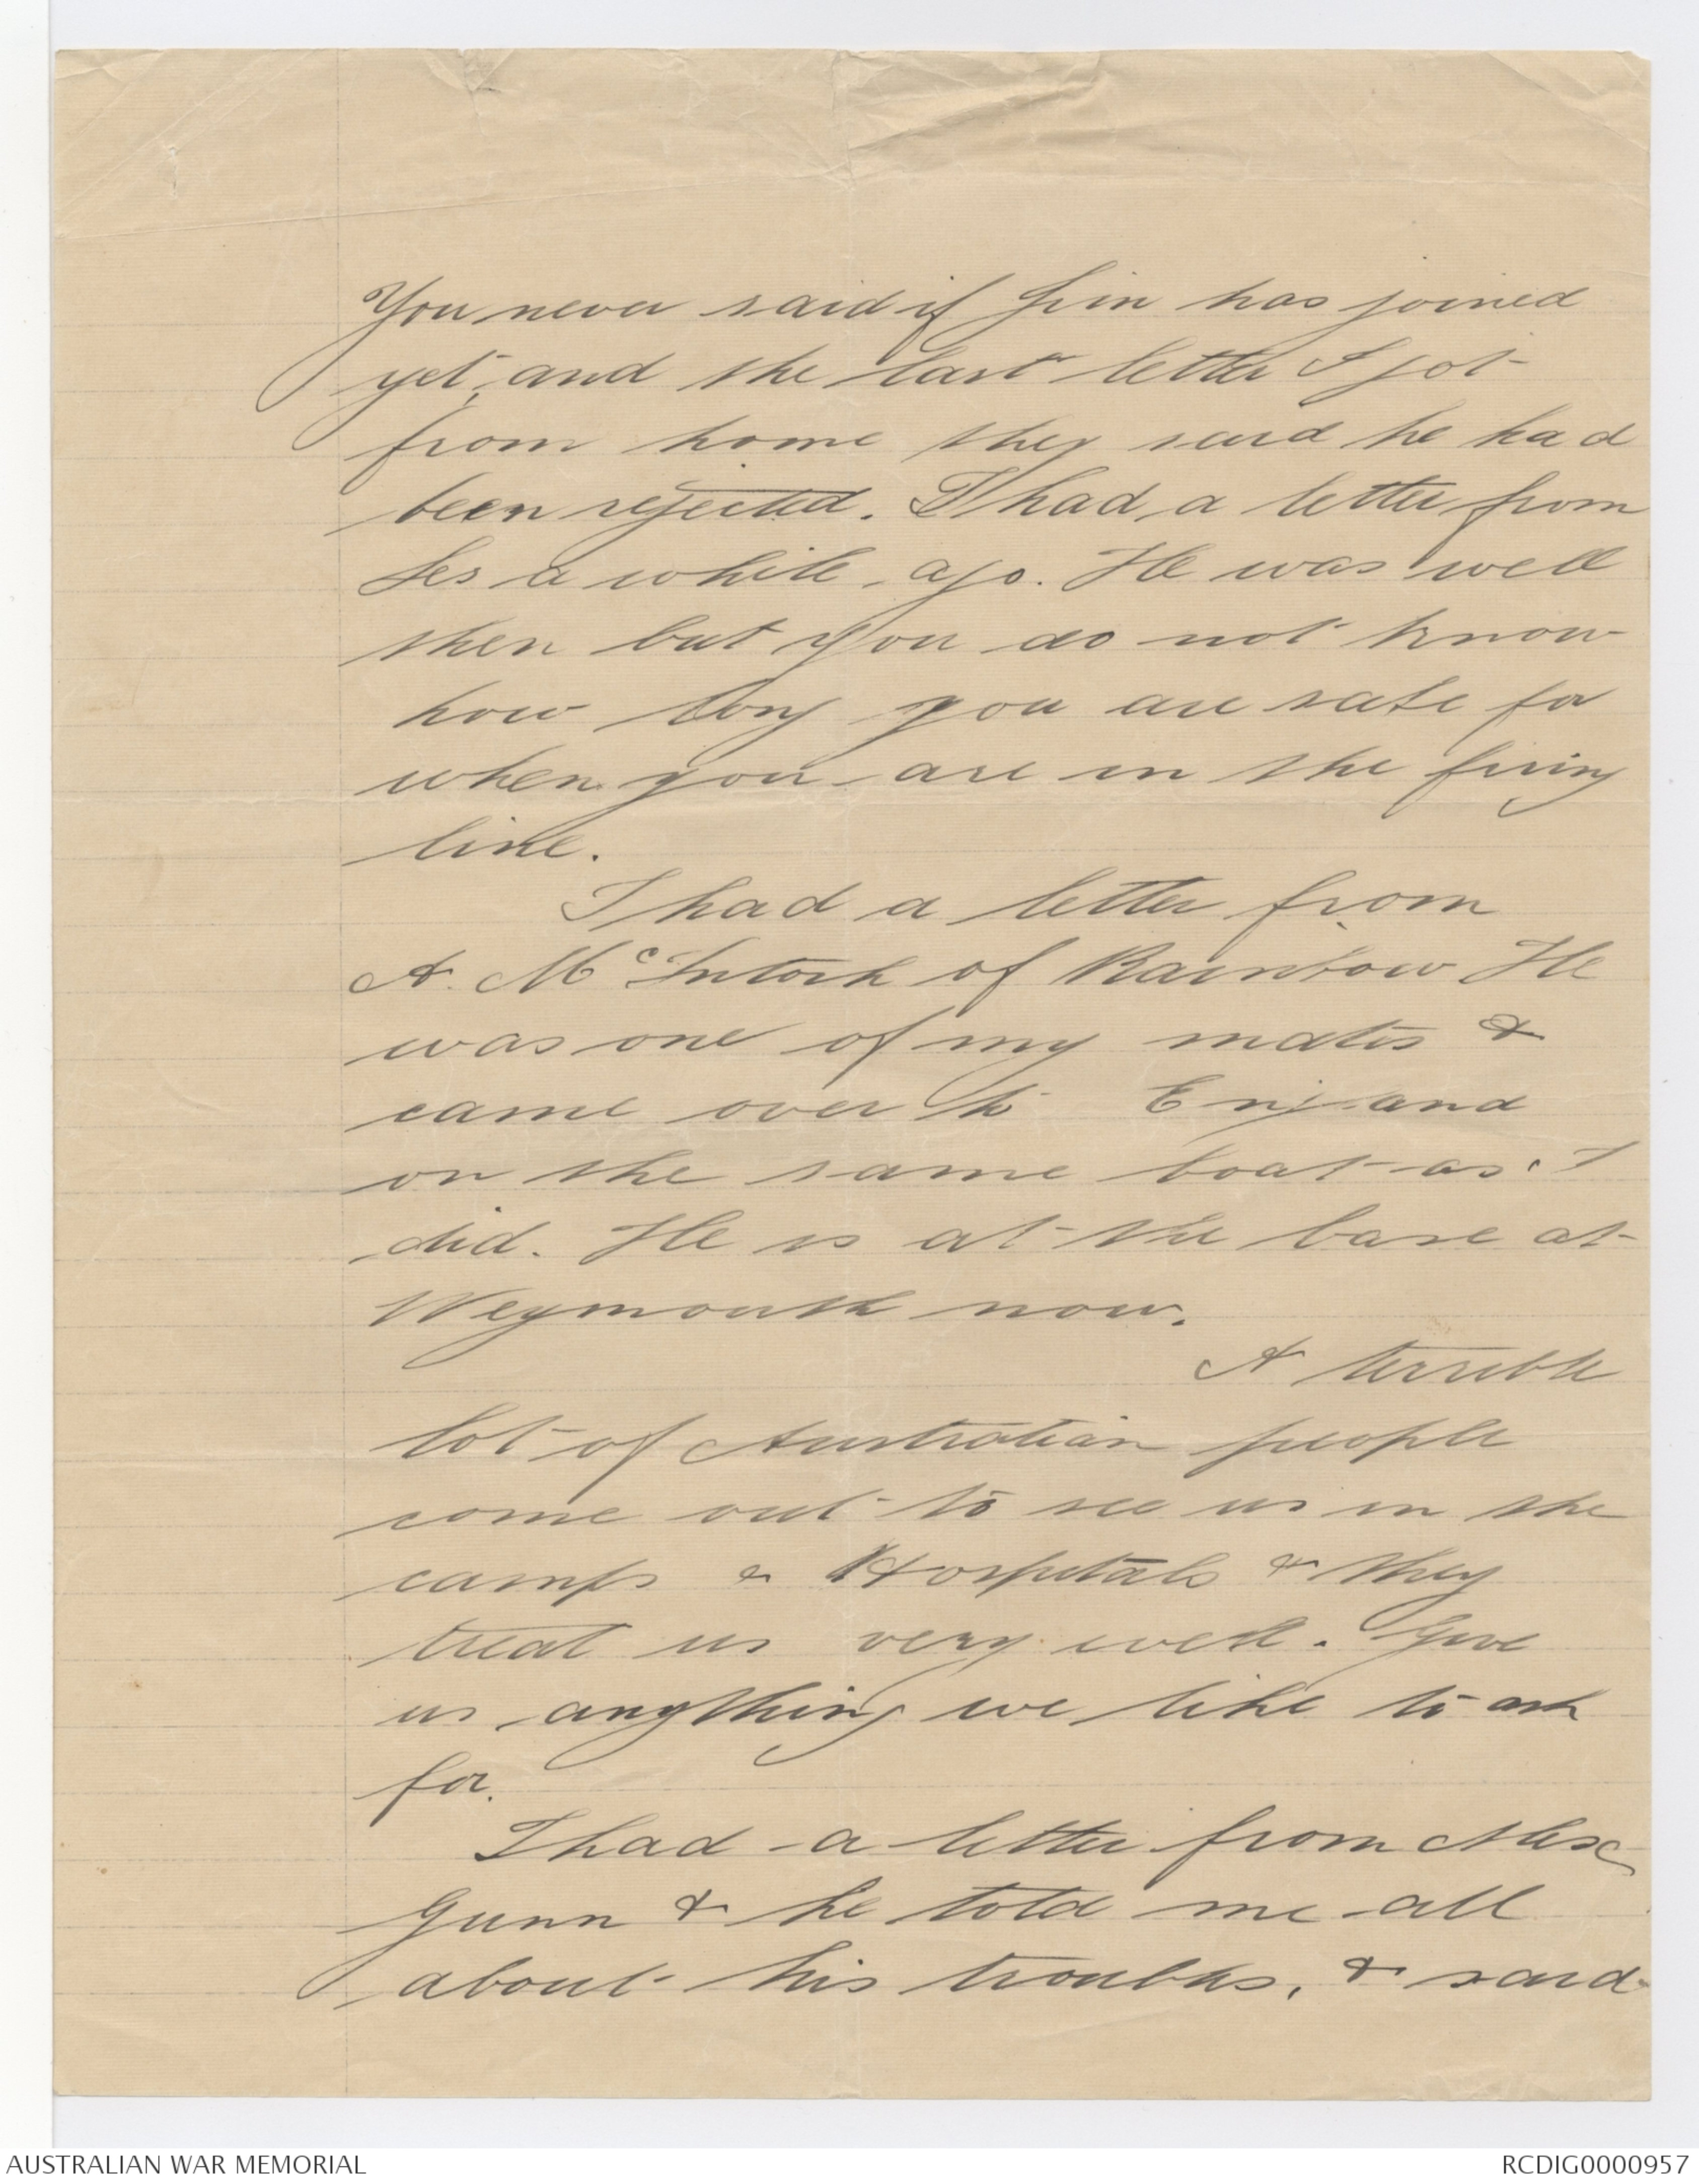 You never said if Jim has joined
yet, and the last letter I got
from home they said he had
been rejected. I had a letter from
Les a while ago. He was well
then but you do not know
how long you are safe for
when you are in the firing
line.
I had a letter from
A. McIntosh of Rainbow He
was one of my mates &
came over to England
on the same boat as I
did. He is at the base at
Weymouth now.
A terrible
lot of Australian people
come out to see us in the
camps & Hospitals & they
treat us very well. Give
us anything we like to ask
for.
I had a letter from Alex
Gunn & he told me all
about his troubles, & said
AUSTRALIAN WAR MEMORIAL
RCDIG0000957